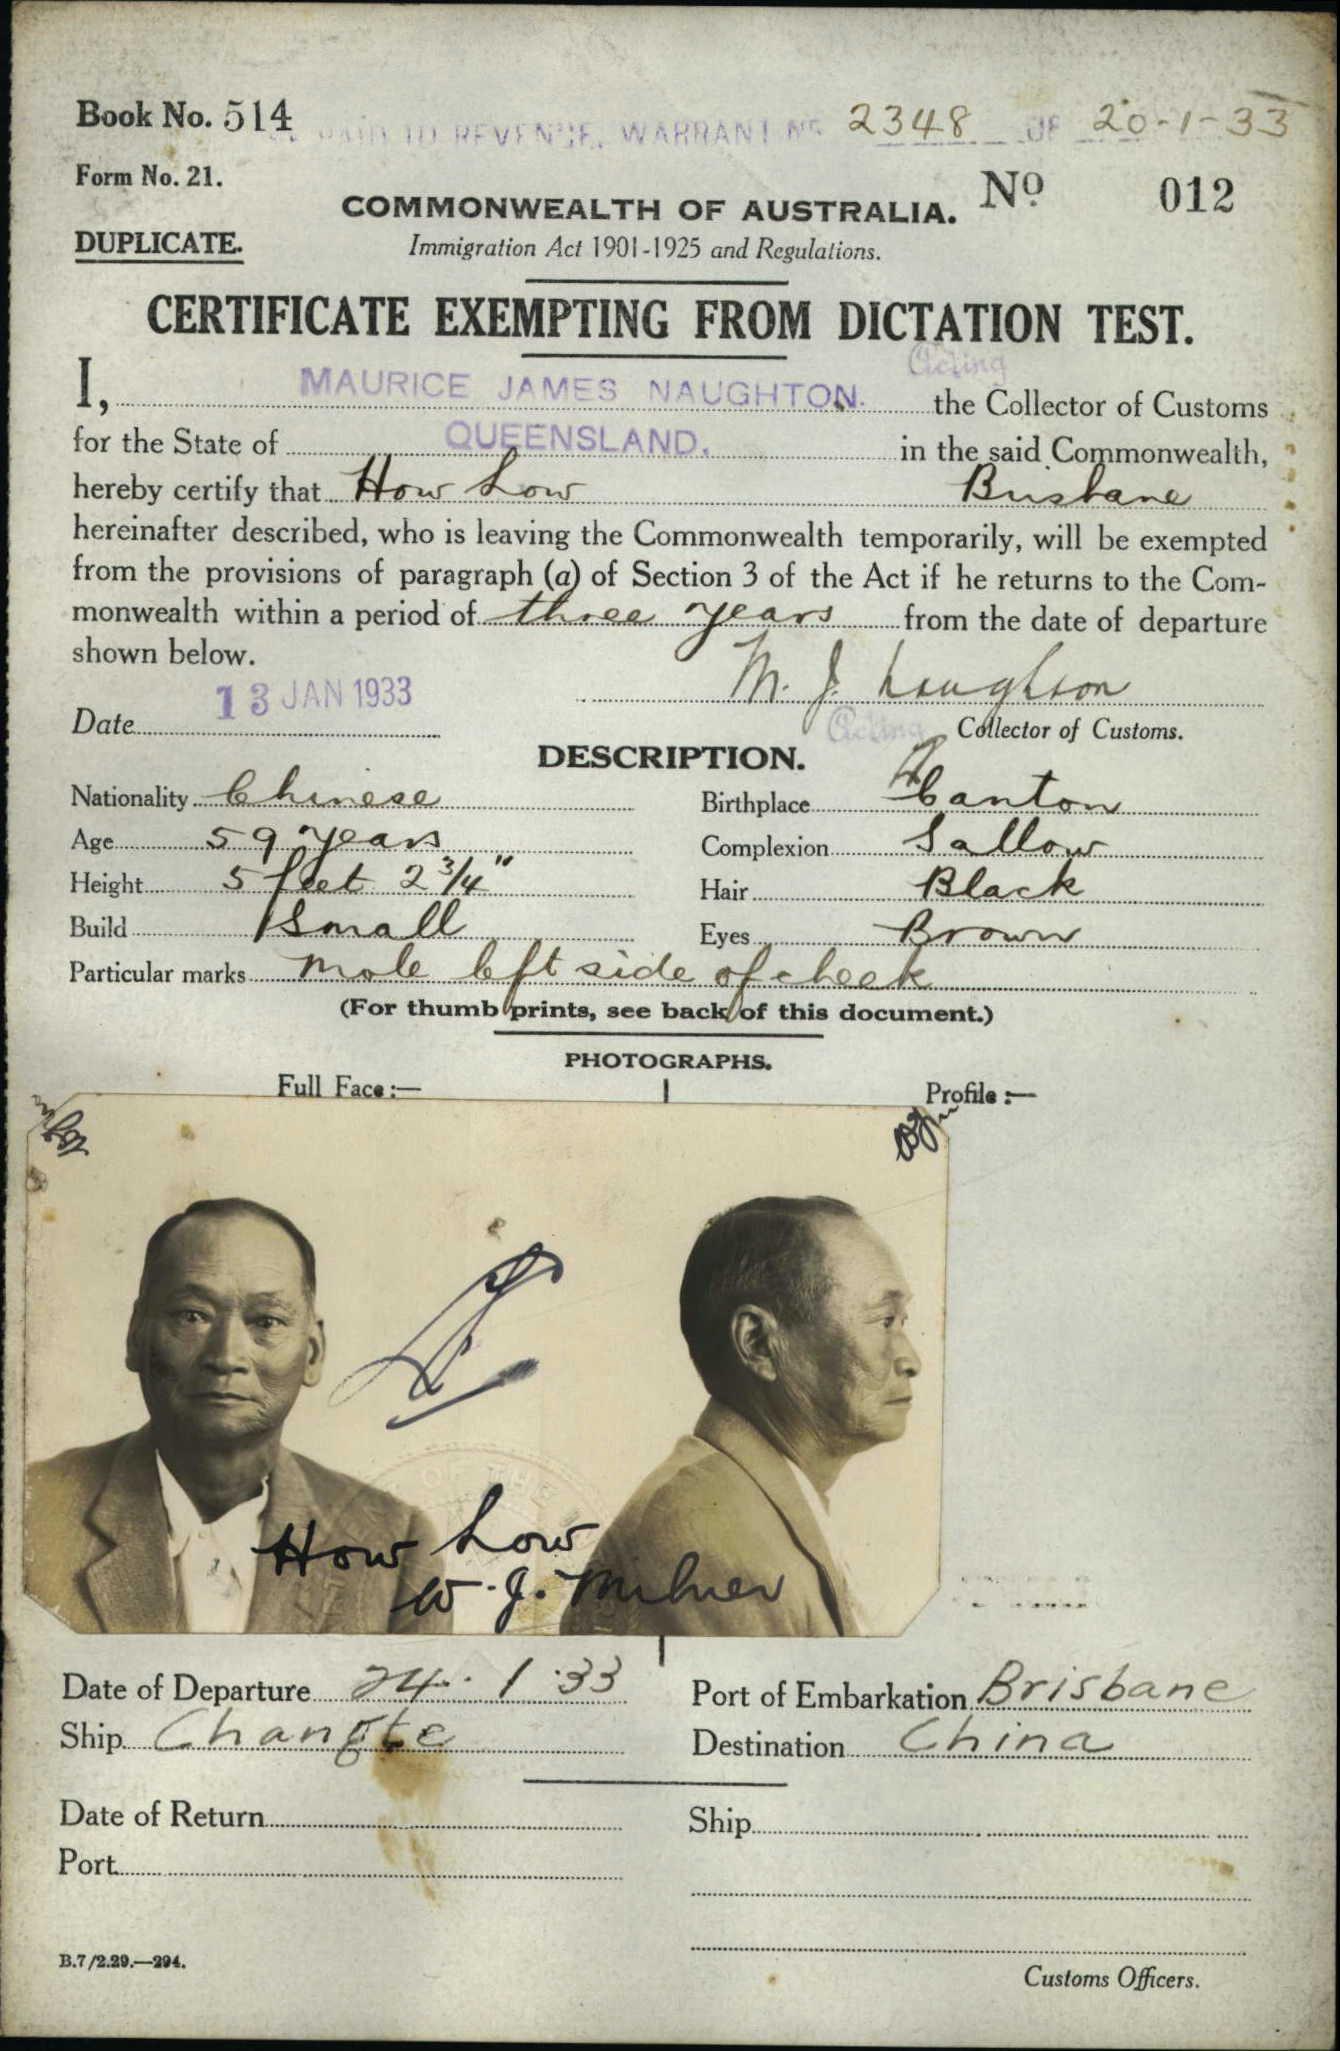 Book No. 514
PAID TO REVENUE, WARRANT No 2348 OF 20-1-33
Form No. 21.
COMMONWEALTH OF AUSTRALIA. No. 012
DUPLICATE.
Immigration Act 1901-1925 and Regulations.
CERTIFICATE EXEMPTING FROM DICTATION TEST.
Acting
I, MAURICE JAMES NAUGHTON. the Collector of Customs
for the State of QUEENSLAND. in the said Commonwealth,
hereby certify that How Low Brisbane
hereinafter described, who is leaving the Commonwealth temporarily, will be exempted
from the provisions of paragraph (a) of Section 3 of the Act if he returns to the Com-
monwealth within a period of three years from the date of departure
shown below.
M. J. Naughton
Date 13 JAN 1933
Acting Collector of Customs.
DESCRIPTION.
Nationality Chinese Birthplace Canton
Age 59 years Complexion Sallow
Height 5 feet 2 3/4" Hair Black
Build Small Eyes Brown
Particular marks mole left side of cheek
(For thumb prints, see back of this document.)
PHOTOGRAPHS.
Full Face:— Profile:—
How Low
W. J. Milner
Date of Departure 24. 1. 33 Port of Embarkation Brisbane
Ship Changte Destination China
Date of Return Ship
Port
B.7/2.29.—294.
Customs Officers.